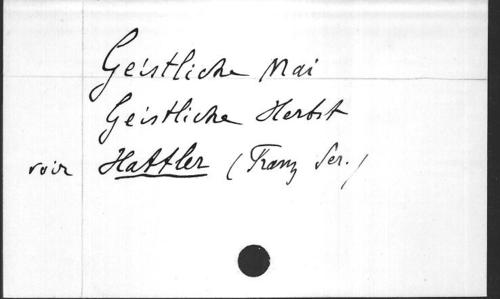 Geistliche Mai
Geistliche Herbst
voir Hattler (Franz Ser.)